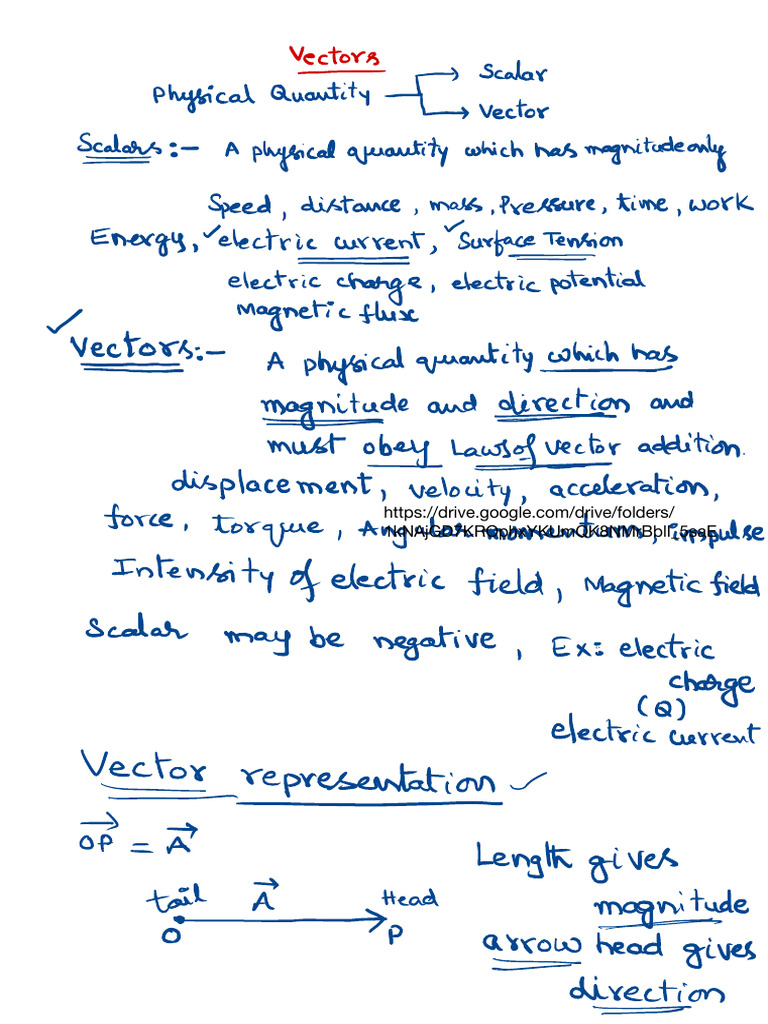 Vectors
Physical Quantity → Scalar
→ Vector
Scalars :- A physical quantity which has magnitude only
Speed, distance, mass, Pressure, time, work
Energy, ✓electric current, ✓Surface Tension
electric charge, electric potential
Magnetic flux
✓ Vectors :- A physical quantity which has
magnitude and direction and
must obey Laws of vector addition.
displacement, velocity, acceleration,
https://drive.google.com/drive/folders/
force, torque, Angular momentum, impulse
Intensity of electric field, Magnetic field
Scalar may be negative, Ex: electric
charge
(Q)
electric current
Vector representation ✓
OP⃗ = A⃗
Length gives
magnitude
tail A⃗ Head
O P
arrow head gives
direction